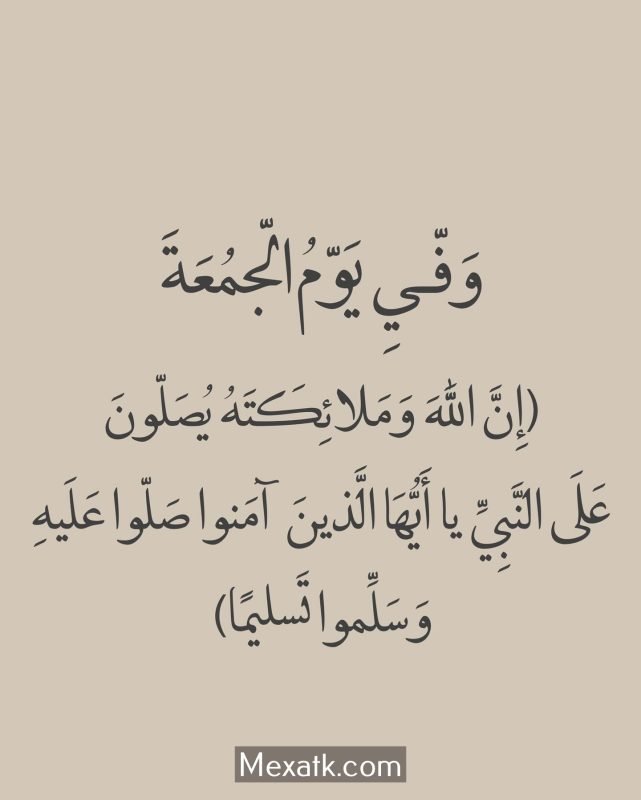 وَفّـيِ يَوّمُ الّجمُعَةَ
(إِنَّ اللَّهَ وَمَلائِكَتَهُ يُصَلّونَ
عَلَى النَّبِيِّ يا أَيُّهَا الَّذينَ آمَنوا صَلّوا عَلَيهِ
وَسَلِّموا تَسليمًا)
Mexatk.com